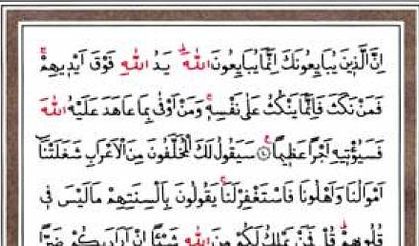 اِنَّ الَّذِينَ يُبَايِعُونَكَ اِنَّمَا يُبَايِعُونَ اللّٰهَۜ يَدُ اللّٰهِ فَوْقَ اَيْدِيهِمْۚ
فَمَنْ نَكَثَ فَاِنَّمَا يَنْكُثُ عَلٰى نَفْسِهِۚ وَمَنْ اَوْفٰى بِمَا عَاهَدَ عَلَيْهُ اللّٰهَ
فَسَيُؤْتِيهِ اَجْرًا عَظِيمًا۟ ﴿١٠﴾ سَيَقُولُ لَكَ الْمُخَلَّفُونَ مِنَ الْاَعْرَابِ شَغَلَتْنَٓا
اَمْوَالُنَا وَاَهْلُونَا فَاسْتَغْفِرْ لَنَاۚ يَقُولُونَ بِاَلْسِنَتِهِمْ مَا لَيْسَ فِى
قُلُوبِهِمْۜ قُلْ فَمَنْ يَمْلِكُ لَكُمْ مِنَ اللّٰهِ شَيْـًٔا اِنْ اَرَادَ بِكُمْ ضَرًّا